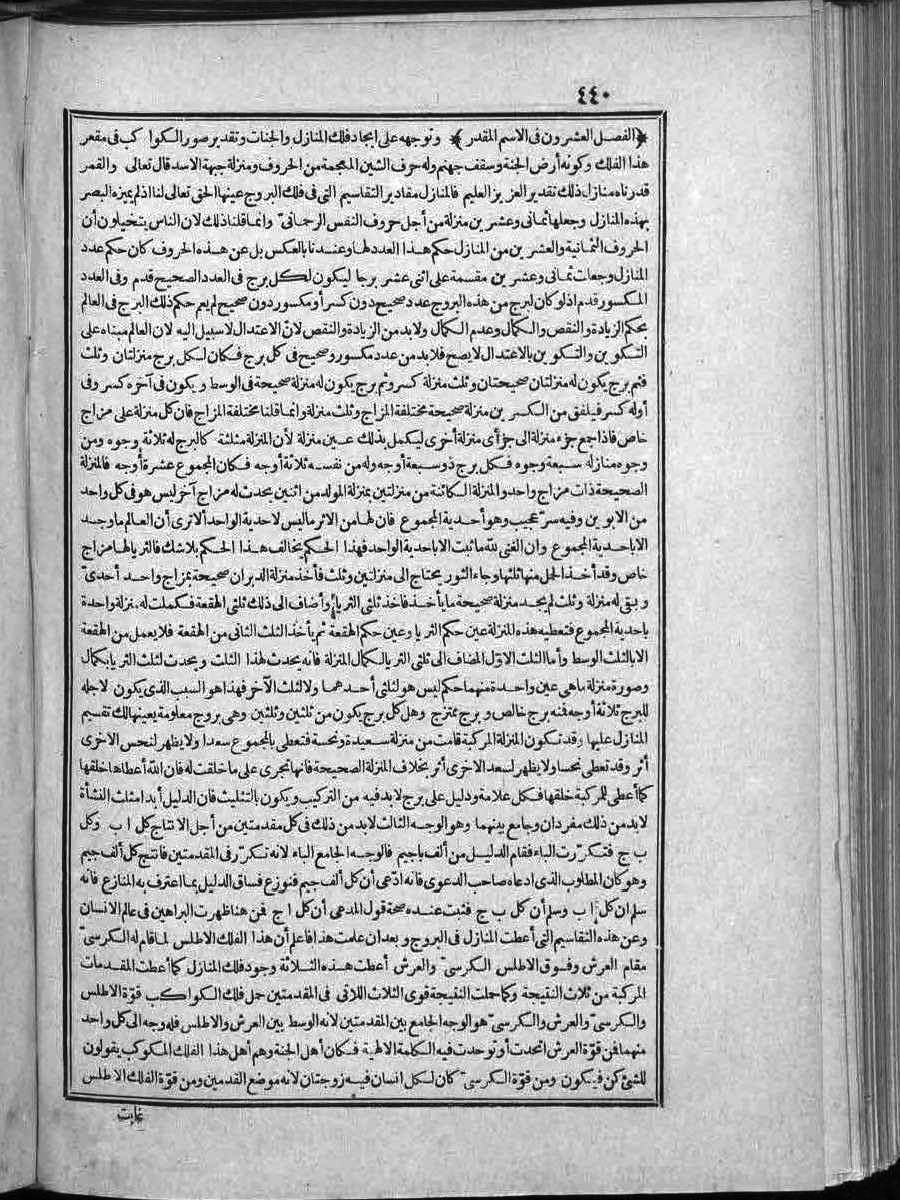 ٤٤٠
﴿الفصل العشرون فى الاسم المقدر﴾ وتوجهه على ايجاد فلك المنازل والجنات وتقدير صور الكواكب فى مقعر
هذا الفلك وكونه أرض الجنة وسقف جهنم وله حرف الشين المعجمة من الحروف ومنزلة جبهة الاسد قال تعالى والقمر
قدرناه منازل ذلك تقدير العزيز العليم فالمنازل مقادير التقاسيم التى فى فلك البروج عينها الحق تعالى لنا اذ لم يميزه البصر
بهذه المنازل وجعلها ثمانى وعشرين منزلة من أجل حروف النفس الرحمانى وانما قلنا ذلك لان الناس يتخيلون أن
الحروف الثمانية والعشرين من المنازل حكم هذا العدد لها وعندنا بالعكس بل عن هذه الحروف كان حكم عدد
المنازل وجعلت ثمانى وعشرين مقسمة على اثنى عشر برجا ليكون لكل برج فى العدد الصحيح قدم وفى العدد
المكسور قدم اذ لو كان لبرج من هذه البروج عدد صحيح دون كسر أو مكسور دون صحيح لم يعم حكم ذلك البرج فى العالم
بحكم الزيادة والنقص والكمال وعدم الكمال ولابد من الزيادة والنقص لانّ الاعتدال لا سبيل اليه لان العالم مبناه على
التكوين والتكوين بالاعتدال لا يصح فلابد من عدد مكسور وصحيح فى كل برج فكان لكل برج منزلتان وثلث
فثم برج يكون له منزلتان صحيحتان وثلث منزلة كسر وثم برج يكون له منزلة صحيحة فى الوسط ويكون فى آخره كسر وفى
أوله كسر فيلفق من الكسرين منزلة صحيحة مختلفة المزاج وثلث منزلة وانما قلنا مختلفة المزاج فان كل منزلة على مزاج
خاص فاذا جمع جزء منزلة الى جزأى منزلة أخرى ليكمل بذلك عين منزلة لأن المنزلة مثلثة كالبرج له ثلاثة وجوه ومن
وجوه منازله سبعة وجوه فكل برج ذو سبعة أوجه وله من نفسه ثلاثة أوجه فكان المجموع عشرة أوجه فالمنزلة
الصحيحة ذات مزاج واحد والمنزلة الكائنة من منزلتين بمنزلة المولد من اثنين يحدث له مزاج آخر ليس هو فى كل واحد
من الابوين وفيه سرّ عجيب وهو أحدية المجموع فان لها من الاثر ما ليس لاحدية الواحد ألا ترى أن العالم ما وجد
الا باحدية المجموع وان الغنى لله ما ثبت الا باحدية الواحد فهذا الحكم يخالف هذا الحكم بلا شك فالثريا لها مزاج
خاص وقد أخذ الحمل منها ثلثها وجاء الثور يحتاج الى منزلتين وثلث فأخذ منزلة الدبران صحيحة بمزاج واحد أحدىّ
وبقى له منزلة وثلث لم يجد منزلة صحيحة ما يأخذ فاخذ ثلثى الثريا وأضاف الى ذلك ثلثى الهقعة فكملت له منزلة واحدة
باحدية المجموع فتعطيه هذه المنزلة عين حكم الثريا وعين حكم الهقعة ثم يأخذ الثلث الثانى من الهقعة فلا يعمل من الهقعة
الا بالثلث الوسط وأما الثلث الاوّل المضاف الى ثلثى الثريا لكمال المنزلة فانه يحدث لهذا الثلث ويحدث لثلث الثريا بكمال
وصورة منزلة ما هى عين واحدة منهما حكم ليس هو لثلثى أحدهما ولا لثلث الآخر فهذا هو السبب الذى يكون لاجله
للبرج ثلاثة أوجه فمنه برج خالص وبرج ممتزج وهل كل برج يكون من ثلثين وثلثين وهى بروج معلومة يعينها لك تقسيم
المنازل عليها وقد تكون المنزلة المركبة قامت من منزلة سعيدة ونحسة فتعطى بالمجموع سعدا ولا يظهر لنحس الاخرى
أثر وقد تعطى نحسا ولا يظهر لسعد الاخرى أثر بخلاف المنزلة الصحيحة فانها تجرى على ما خلقت له فان الله أعطاها خلقها
كما أعطى للمركبة خلقها فكل علامة ودليل على برج لابد فيه من التركيب ويكون بالتثليث فان الدليل أبدا مثلث النشأة
لابد من ذلك مفردان وجامع بينهما وهو الوجه الثالث لابد من ذلك فى كل مقدمتين من أجل الانتاج كل ا ب وكل
ب ج فتكرّرت الباء فقام الدليل من ألف باجيم فالوجه الجامع الباء لانه تكرّر فى المقدمتين فانتج كل ألف جيم
وهو كان المطلوب الذى ادعاه صاحب الدعوى فانه ادّعى أن كل ألف جيم فنوزع فساق الدليل بما اعترف به المنازع فانه
سلم ان كل ا ب وسلم أن كل ب ج فثبت عنده صحة قول المدعى أن كل ا ج فمن هنا ظهرت البراهين فى عالم الانسان
وعن هذه التقاسيم التى أعطت المنازل فى البروج وبعد ان علمت هذا فاعلم أن هذا الفلك الاطلس لما قام له الكرسىّ
مقام العرش وفوق الاطلس الكرسىّ والعرش أعطت هذه الثلاثة وجود فلك المنازل كما أعطت المقدمات
المركبة من ثلاث النتيجة وكما حملت النتيجة قوى الثلاث اللاتى فى المقدمتين حمل فلك الكواكب قوّة الاطلس
والكرسىّ والعرش والكرسىّ هو الوجه الجامع بين المقدمتين لانه الوسط بين العرش والاطلس فله وجه الى كل واحد
منهما فمن قوّة العرش اتحدت أو توحدت فيه الكلمة الالهية فكان أهل الجنة وهم أهل هذا الفلك المكوكب يقولون
للشئ كن فيكون ومن قوّة الكرسىّ كان لكل انسان فيه زوجتان لانه موضع القدمين ومن قوّة الفلك الاطلس